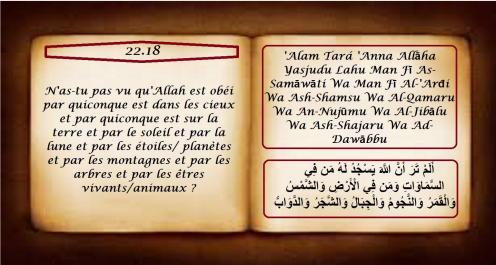 22.18
N'as-tu pas vu qu'Allah est obéi
par quiconque est dans les cieux
et par quiconque est sur la
terre et par le soleil et par la
lune et par les étoiles/ planètes
et par les montagnes et par les
arbres et par les êtres
vivants/animaux ?
'Alam Tará 'Anna Allāha
Yasjudu Lahu Man Fī As-
Samāwāti Wa Man Fī Al-'Arđi
Wa Ash-Shamsu Wa Al-Qamaru
Wa An-Nujūmu Wa Al-Jibālu
Wa Ash-Shajaru Wa Ad-
Dawābbu
أَلَمْ تَرَ أَنَّ اللَّهَ يَسْجُدُ لَهُ مَن فِي
السَّمَاوَاتِ وَمَن فِي الْأَرْضِ وَالشَّمْسُ
وَالْقَمَرُ وَالنُّجُومُ وَالْجِبَالُ وَالشَّجَرُ وَالدَّوَابُّ